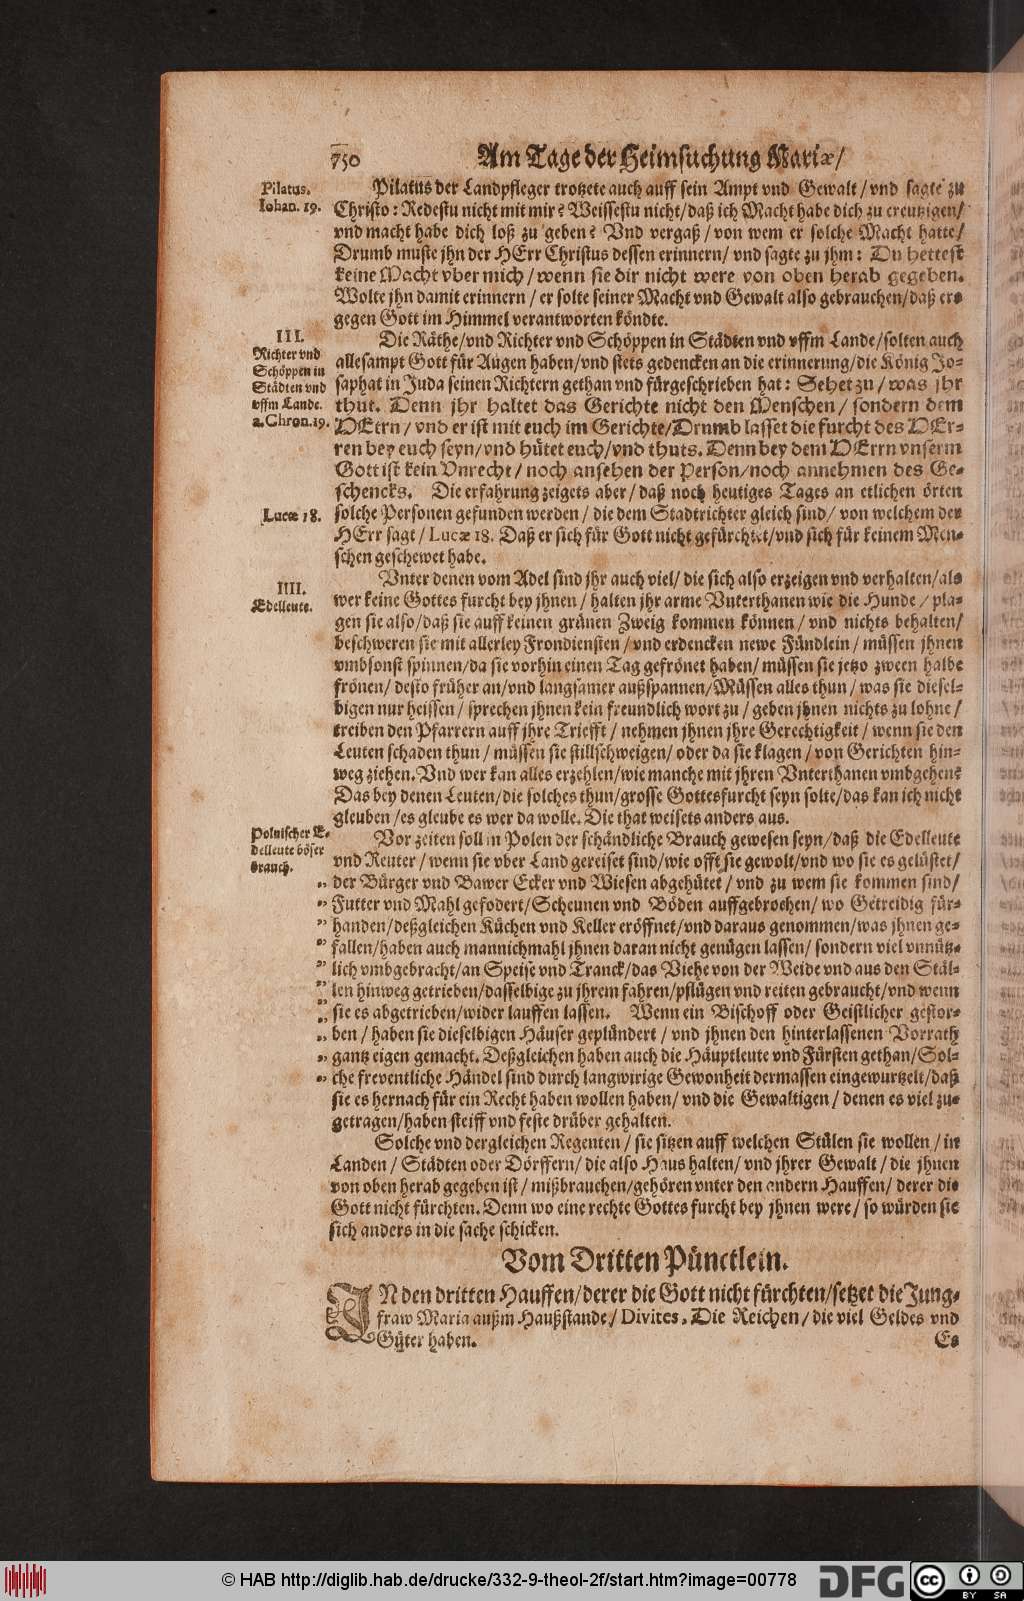 750 Am Tage der Heimsuchung Mariæ/
Pilatus.
Iohan. 19.
Pilatus der Landpfleger trotzete auch auff sein Ampt vnd Gewalt / vnd sagte zu
Christo: Redestu nicht mit mir? Weissestu nicht/daß ich Macht habe dich zu creutzigen/
vnd macht habe dich loß zu geben? Vnd vergaß / von wem er solche Macht hatte/
Drumb muste jhn der HErr Christus dessen erinnern/ vnd sagte zu jhm: Du hettest
keine Macht vber mich / wenn sie dir nicht were von oben herab gegeben.
Wolte jhn damit erinnern / er solte seiner Macht vnd Gewalt also gebrauchen/daß ers
gegen Gott im Himmel verantworten köndte.
III.
Richter vnd
Schöppen in
Städten vnd
vffm Lande.
2. Chron. 19.
Die Räthe/vnd Richter vnd Schöppen in Städten vnd vffm Lande/solten auch
allesampt Gott für Augen haben/vnd stets gedencken an die erinnerung/die König Jo-
saphat in Juda seinen Richtern gethan vnd fürgeschrieben hat: Sehet zu / was jhr
thut. Denn jhr haltet das Gerichte nicht den Menschen / sondern dem
HErrn / vnd er ist mit euch im Gerichte/Drumb lasset die furcht des HEr-
ren bey euch seyn/vnd hütet euch/vnd thuts. Denn bey dem HErrn vnserm
Gott ist kein Vnrecht / noch ansehen der Person/noch annehmen des Ge-
schencks. Die erfahrung zeigets aber / daß noch heutiges Tages an etlichen örten
Lucæ 18.
solche Personen gefunden werden / die dem Stadtrichter gleich sind/ von welchem der
HErr sagt / Lucæ 18. Daß er sich für Gott nicht gefürchtet/vnd sich für keinem Men-
schen geschewet habe.
IIII.
Edelleute.
Vnter denen vom Adel sind jhr auch viel/ die sich also erzeigen vnd verhalten/als
wer keine Gottes furcht bey jhnen / halten jhr arme Vnterthanen wie die Hunde / pla-
gen sie also/daß sie auff keinen grünen Zweig kommen können / vnd nichts behalten/
beschweren sie mit allerley Frondiensten / vnd erdencken newe Fündlein / müssen jhnen
vmbsonst spinnen/da sie vorhin einen Tag gefrönet haben/ müssen sie jetzo zween halbe
frönen/ desto früher an/vnd langsamer außspannen/Müssen alles thun / was sie diesel-
bigen nur heissen / sprechen jhnen kein freundlich wort zu / geben jhnen nichts zu lohne /
treiben den Pfarrern auff jhre Triefft / nehmen jhnen jhre Gerechtigkeit / wenn sie den
Leuten schaden thun / müssen sie stillschweigen/ oder da sie klagen / von Gerichten hin-
weg ziehen. Vnd wer kan alles erzehlen/wie manche mit jhren Vnterthanen vmbgehen?
Das bey denen Leuten/die solches thun/grosse Gottesfurcht seyn solte/das kan ich nicht
gleuben /es gleube es wer da wolle. Die that weisets anders aus.
Polnischer E-
delleute böser
brauch.
Vor zeiten soll in Polen der schändliche Brauch gewesen seyn/daß die Edelleute
vnd Reuter / wenn sie vber Land gereiset sind/wie offt sie gewolt/vnd wo sie es gelüstet/
„ der Bürger vnd Bawer Ecker vnd Wiesen abgehütet / vnd zu wem sie kommen sind/
„ Futter vnd Mahl gefodert/Scheunen vnd Böden auffgebrochen/ wo Getreidig für-
„ handen/deßgleichen Küchen vnd Keller eröffnet/vnd daraus genommen/was jhnen ge-
„ fallen/haben auch mannichmahl jhnen daran nicht genügen lassen/ sondern viel vnnütz-
„ lich vmbgebracht/an Speise vnd Tranck/das Viehe von der Weide vnd aus den Stäl-
„ len hinweg getrieben/dasselbige zu jhrem fahren/pflügen vnd reiten gebraucht/vnd wenn
„ sie es abgetrieben/wider lauffen lassen. Wenn ein Bischoff oder Geistlicher gestor-
„ ben / haben sie dieselbigen Häuser geplündert / vnd jhnen den hinterlassenen Vorrath
„ gantz eigen gemacht. Deßgleichen haben auch die Häuptleute vnd Fürsten gethan/Sol-
„ che freventliche Händel sind durch langwirige Gewonheit dermassen eingewurtzelt/daß
sie es hernach für ein Recht haben wollen haben/ vnd die Gewaltigen / denen es viel zu-
getragen/haben steiff vnd feste drüber gehalten.
Solche vnd dergleichen Regenten / sie sitzen auff welchen Stülen sie wollen / in
Landen / Städten oder Dörffern/ die also Haus halten/ vnd jhrer Gewalt / die jhnen
von oben herab gegeben ist / mißbrauchen/gehören vnter den andern Hauffen/ derer die
Gott nicht fürchten. Denn wo eine rechte Gottes furcht bey jhnen were / so würden sie
sich anders in die sache schicken.
Vom Dritten Pünctlein.
IN den dritten Hauffen/derer die Gott nicht fürchten/setzet die Jung-
fraw Maria außm Haußstande/ Divites. Die Reichen / die viel Geldes vnd
Güter haben. Es
© HAB http://diglib.hab.de/drucke/332-9-theol-2f/start.htm?image=00778
DFG
cc BY SA